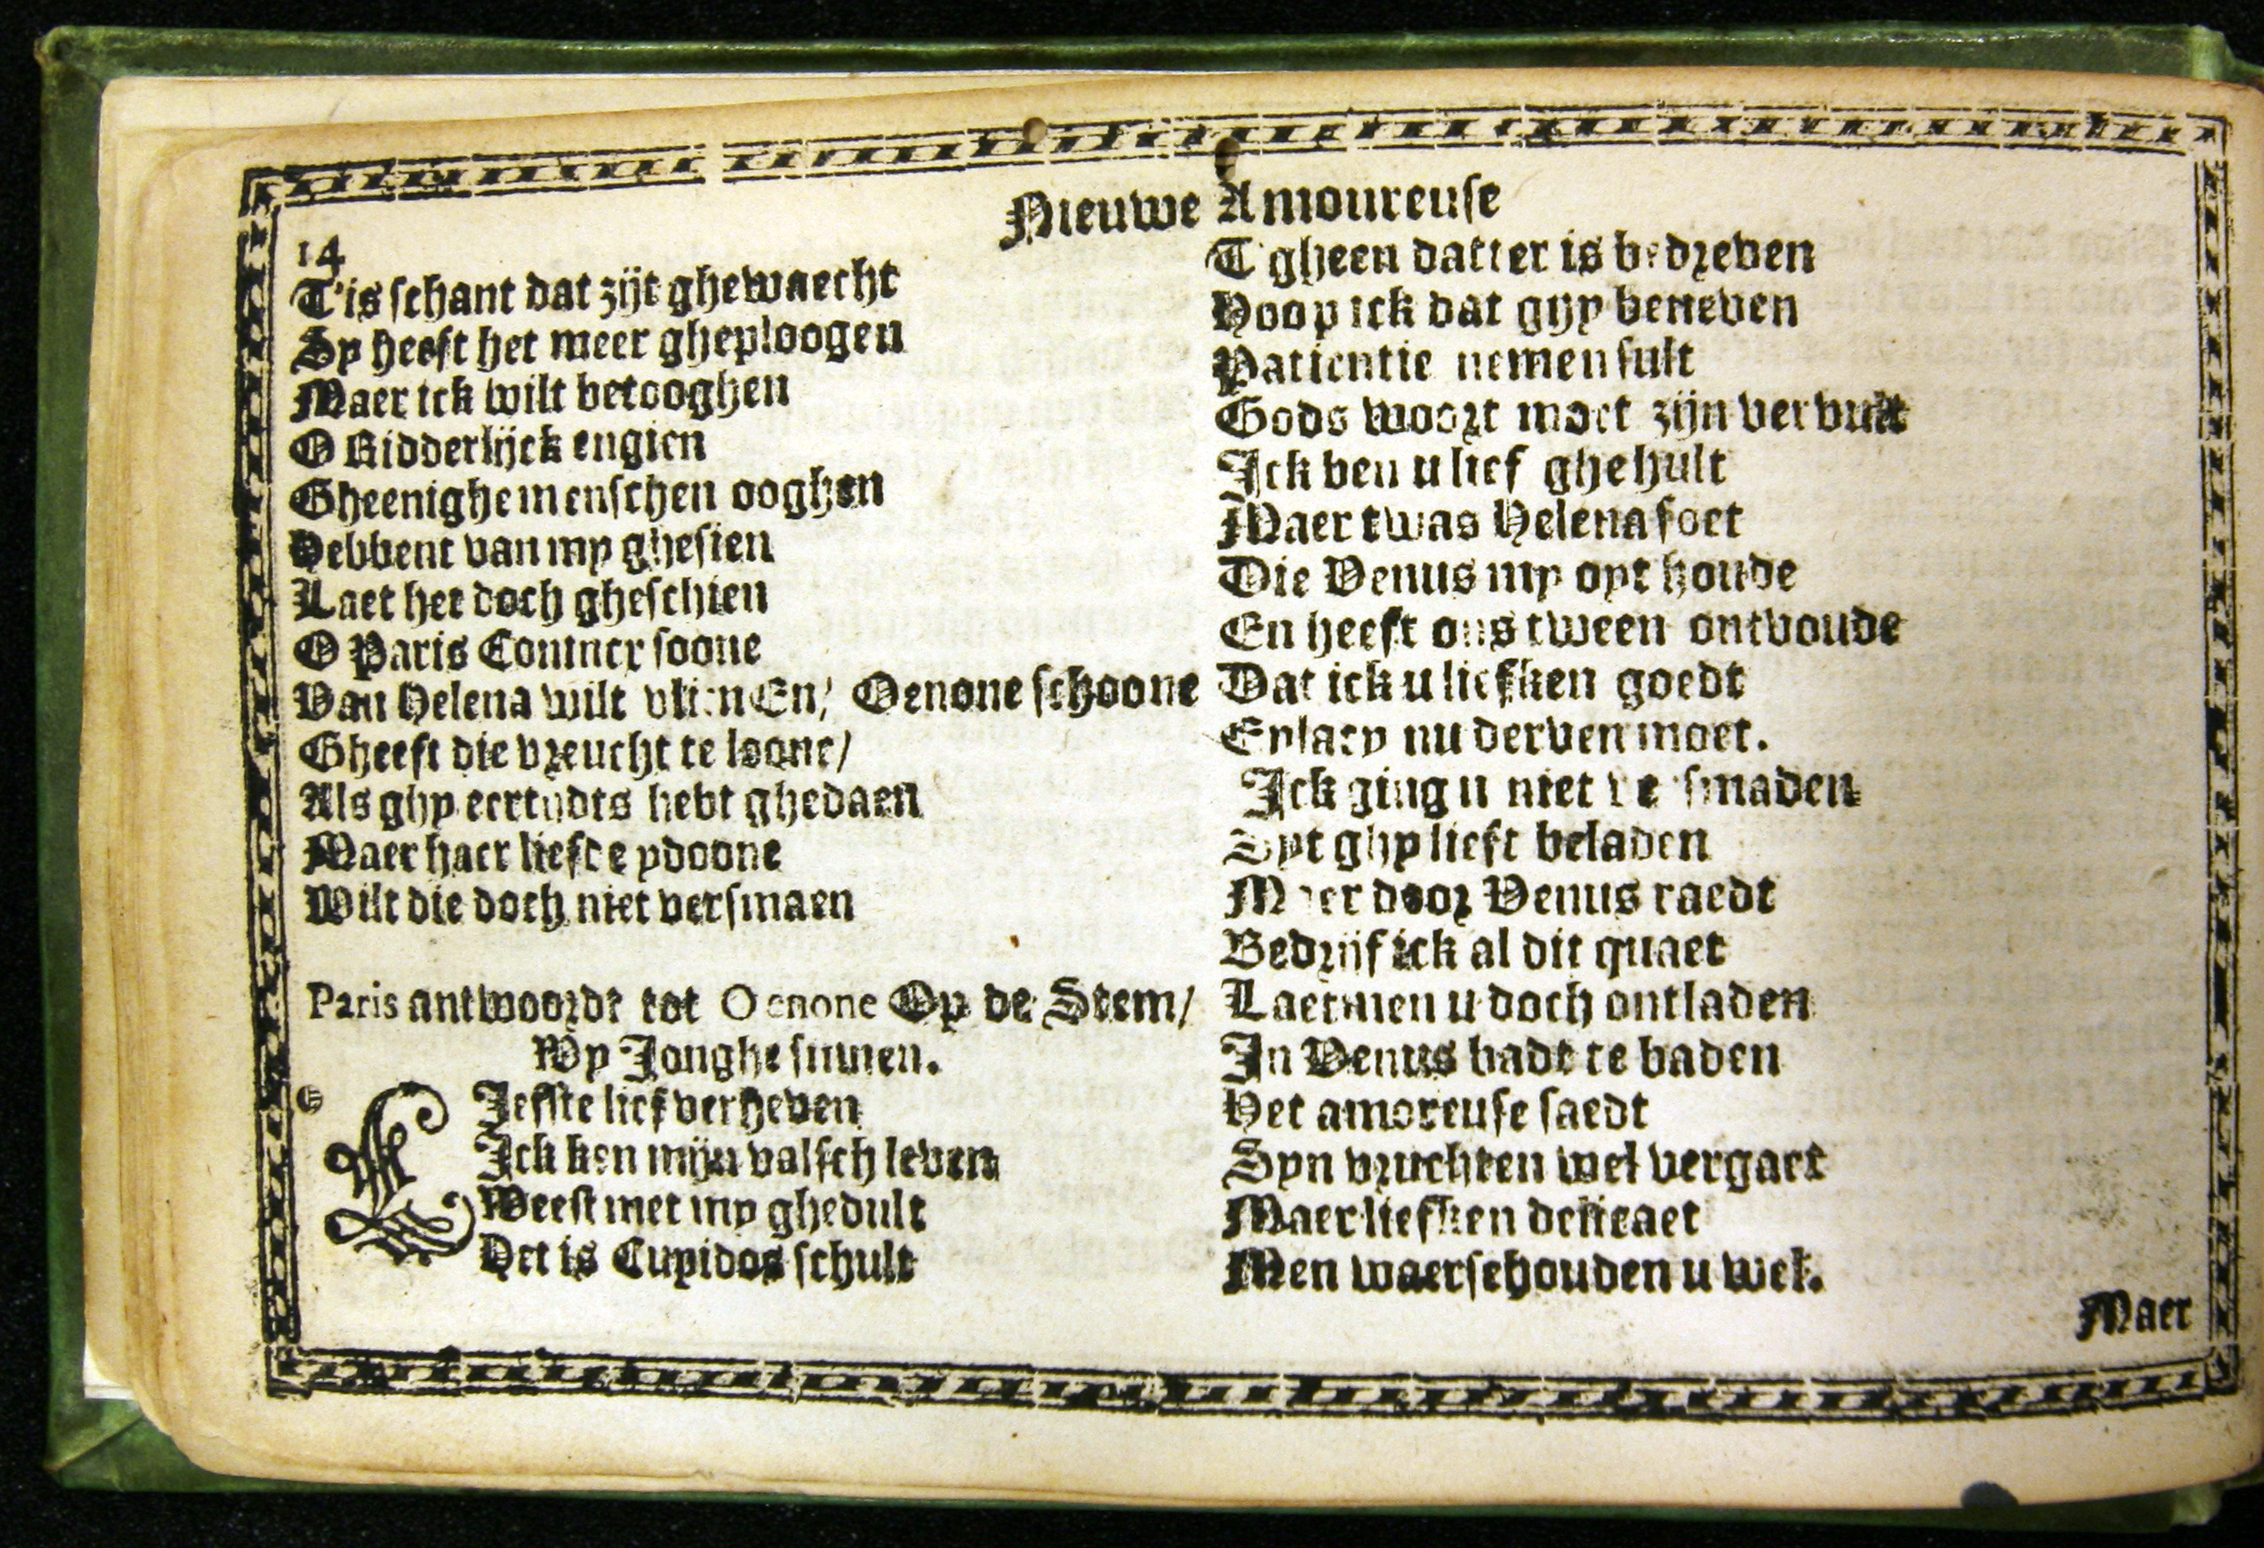 Nieuwe Amoureuse
14
T'is schant dat zijt ghewaecht
Sy heeft het meer gheploogen
Maer ick wilt betooghen
O Ridderlijck engien
Gheenighe menschen ooghen
Hebbent van my ghesien
Laet het doch gheschien
O Paris Conincx soone
Van Helena wilt vlien En/ Oenone schoone
Gheeft die vreucht te loone/
Als ghy eertijdts hebt ghedaen
Maer haer liefde ydoone
Wilt die doch niet versmaen
Paris antwoordt tot Oenone Op de Stem/
Wy Jonghe sinnen.
LIefste lief verheven
Ick ken mijn valsch leven
Weest met my ghedult
Het is Cupidos schult
T'gheen datter is bedreven
Hoop ick dat ghy beneven
Patientie nemen sult
Gods woort moet zijn vervult
Ick ben u lief ghehult
Maer twas Helena soet
Die Venus my opt houde
En heeft ons tween ontvoude
Dat ick u liefken goedt
Eylacy nu derven moet.
Ick ging u niet versmaden
Syt ghy lieft beladen
Maer door Venus raedt
Bedrijf ick al dit quaet
Laetmen u doch ontladen
In Venus badt te baden
Het amoreuse saedt
Syn vruchten wel vergaet
Maer liefken delicaet
Men waerschouden u wel.
Maer